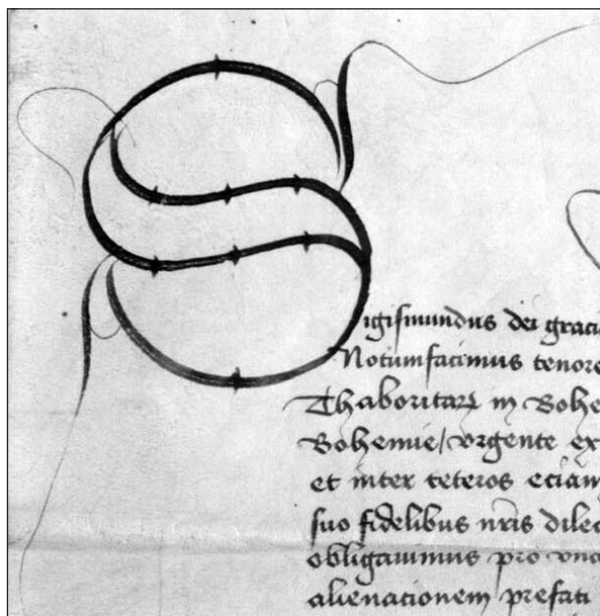 Sigismundus dei graci
Notumfacimus tenore
Thaboritarꝝ in Bohe
Bohemie/vrgente ex
et inter ceteros eciam
suo fidelibus nris dilec
obligauimus pro vna
alienacionem prefati